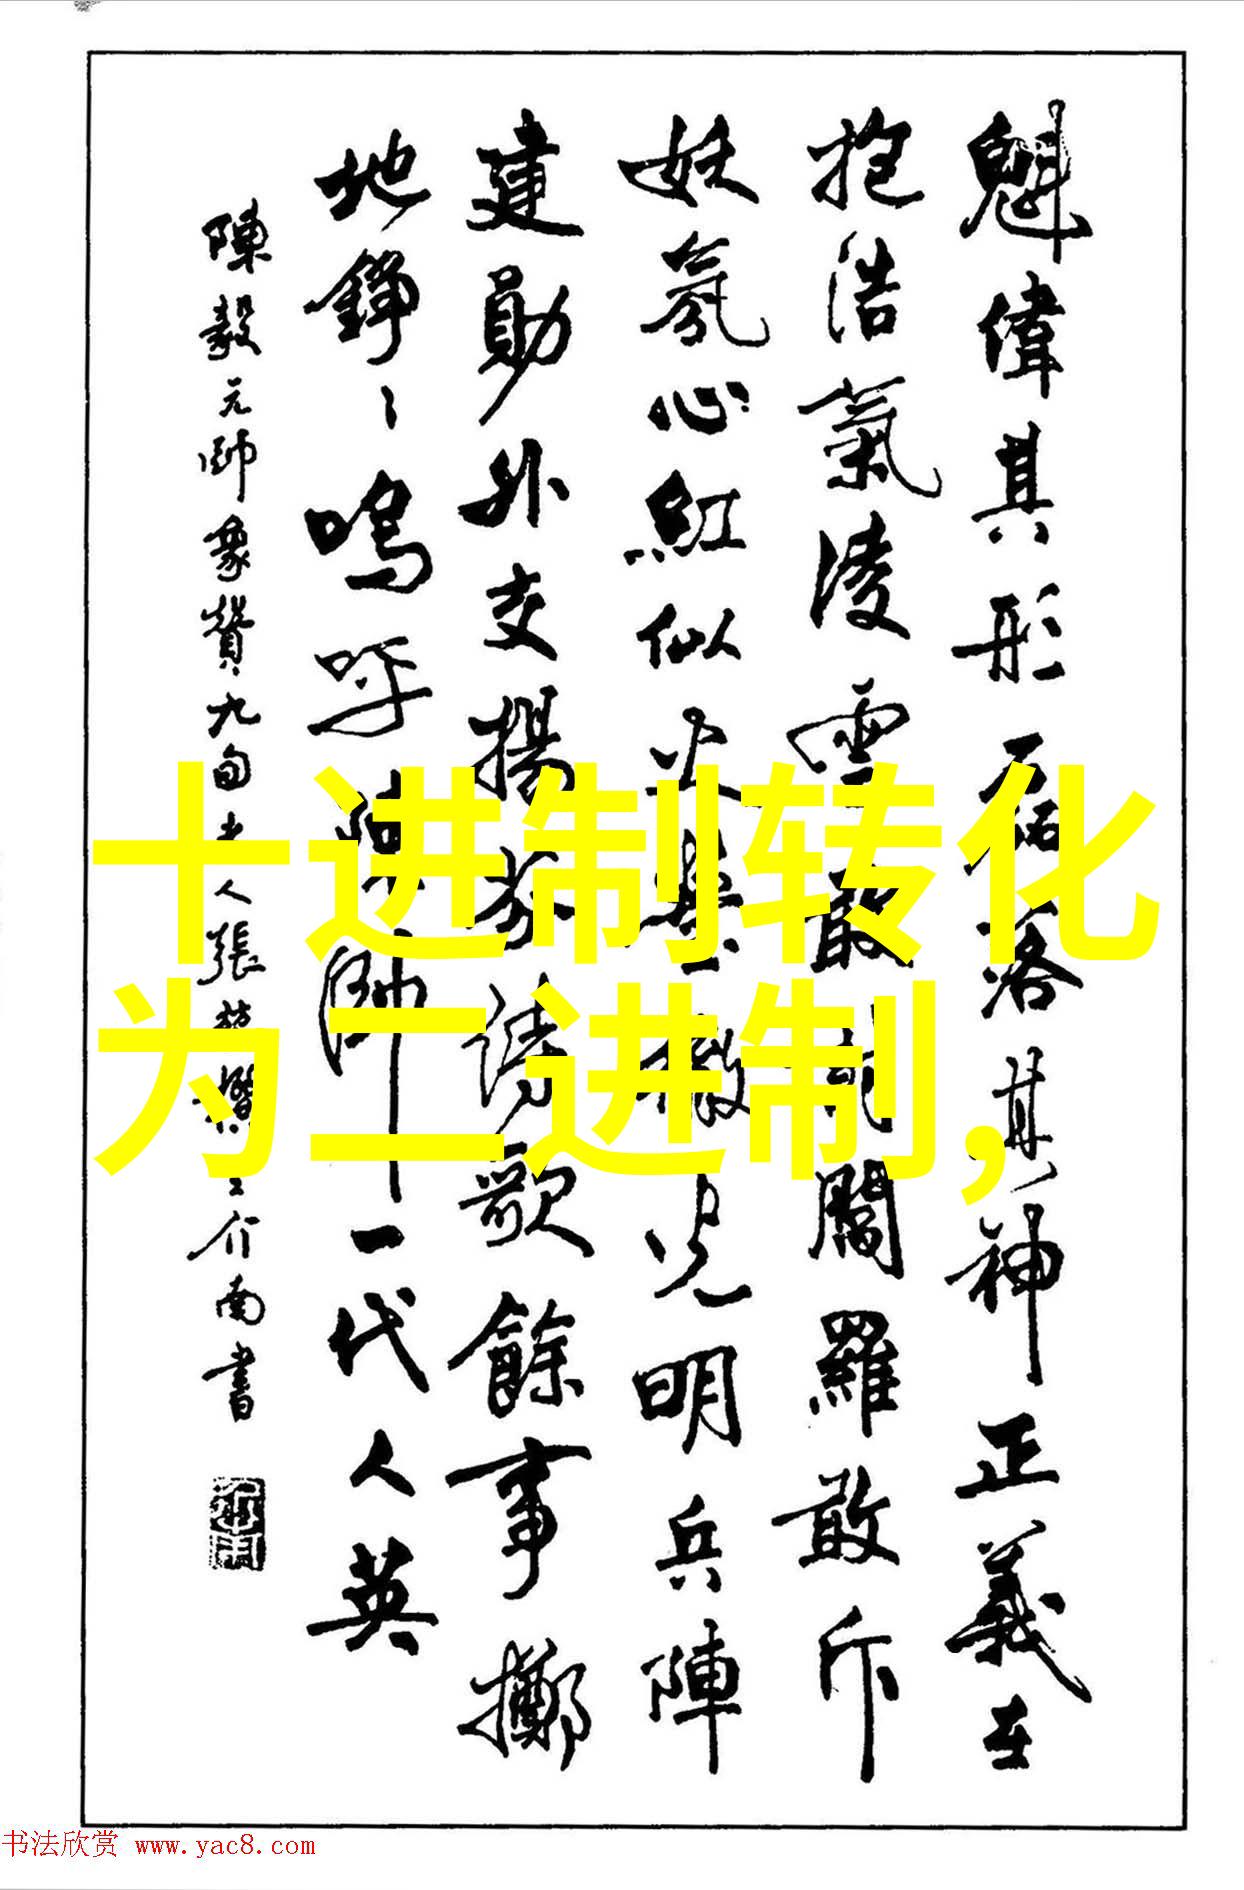 魁偉其形磊落其神正義在
抱浩氣淩雲敢罵閻羅敢斥
妖氛心紅似火光明兵陣
建勛外交揚芬詩歌餘事擲
地錚々嗚呼陳帥一代人英
陳毅元帥象贊九旬老人張撰介南書
十进制转化
为二进制,
书法欣赏 www.yac8.com